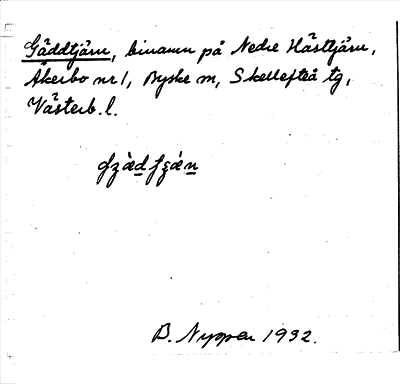 Gäddtjärn, binamn på Nedre Hästtjärn,
Åkerbo nr 1, Byske sn, Skellefteå tg,
Västerb. l.
B. Nyman 1932.